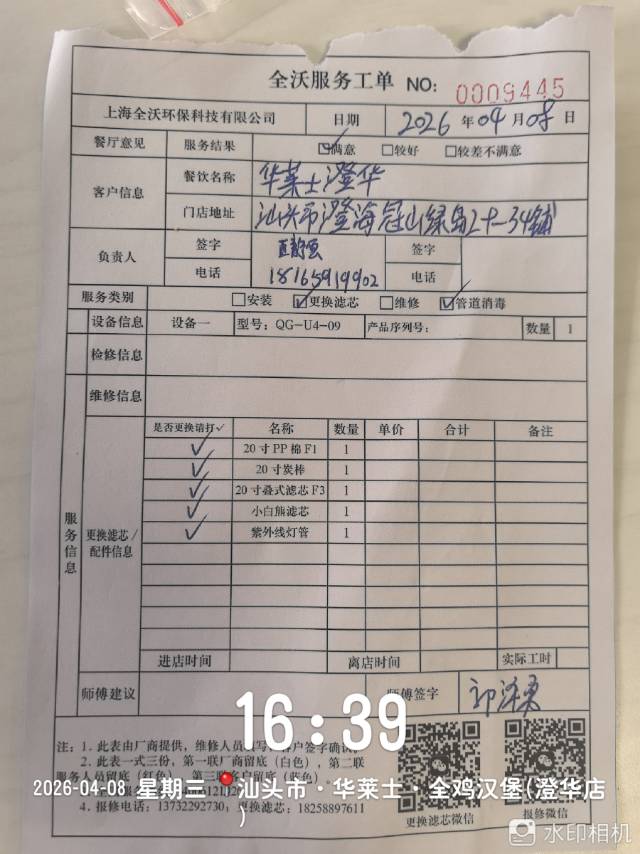 全沃服务工单 NO: 0009445
上海全沃环保科技有限公司 日期 2026年04月08日
餐厅意见 服务结果 ☑满意 □较好 □较差不满意
客户信息 餐饮名称 华莱士澄华
门店地址 汕头市澄海冠山绿岛2十-34铺
负责人 签字 签字
电话 18165919902 电话
服务类别 □安装 ☑更换滤芯 □维修 ☑管道消毒
设备信息 设备一 型号:QG-U4-09 产品序列号: 数量 1
检修信息
维修信息
服务信息
更换滤芯/配件信息
是否更换请打✓ 名称 数量 单价 合计 备注
✓ 20寸PP棉F1 1
✓ 20寸炭棒 1
✓ 20寸叠式滤芯F3 1
✓ 小白熊滤芯 1
✓ 紫外线灯管 1
进店时间 离店时间 实际工时
师傅建议 师傅签字
16:39
注:1. 此表由厂商提供,维修人员填写,客户签字确认。
2. 此表一式三份,第一联厂商留底(白色),第二联
服务人员留底(红色),第三联客户留底(蓝色)。
2026-04-08 星期三 汕头市·华莱士·全鸡汉堡(澄华店
)
4. 报修电话:13732292730;更换滤芯:18258897611
更换滤芯微信 报修微信
水印相机